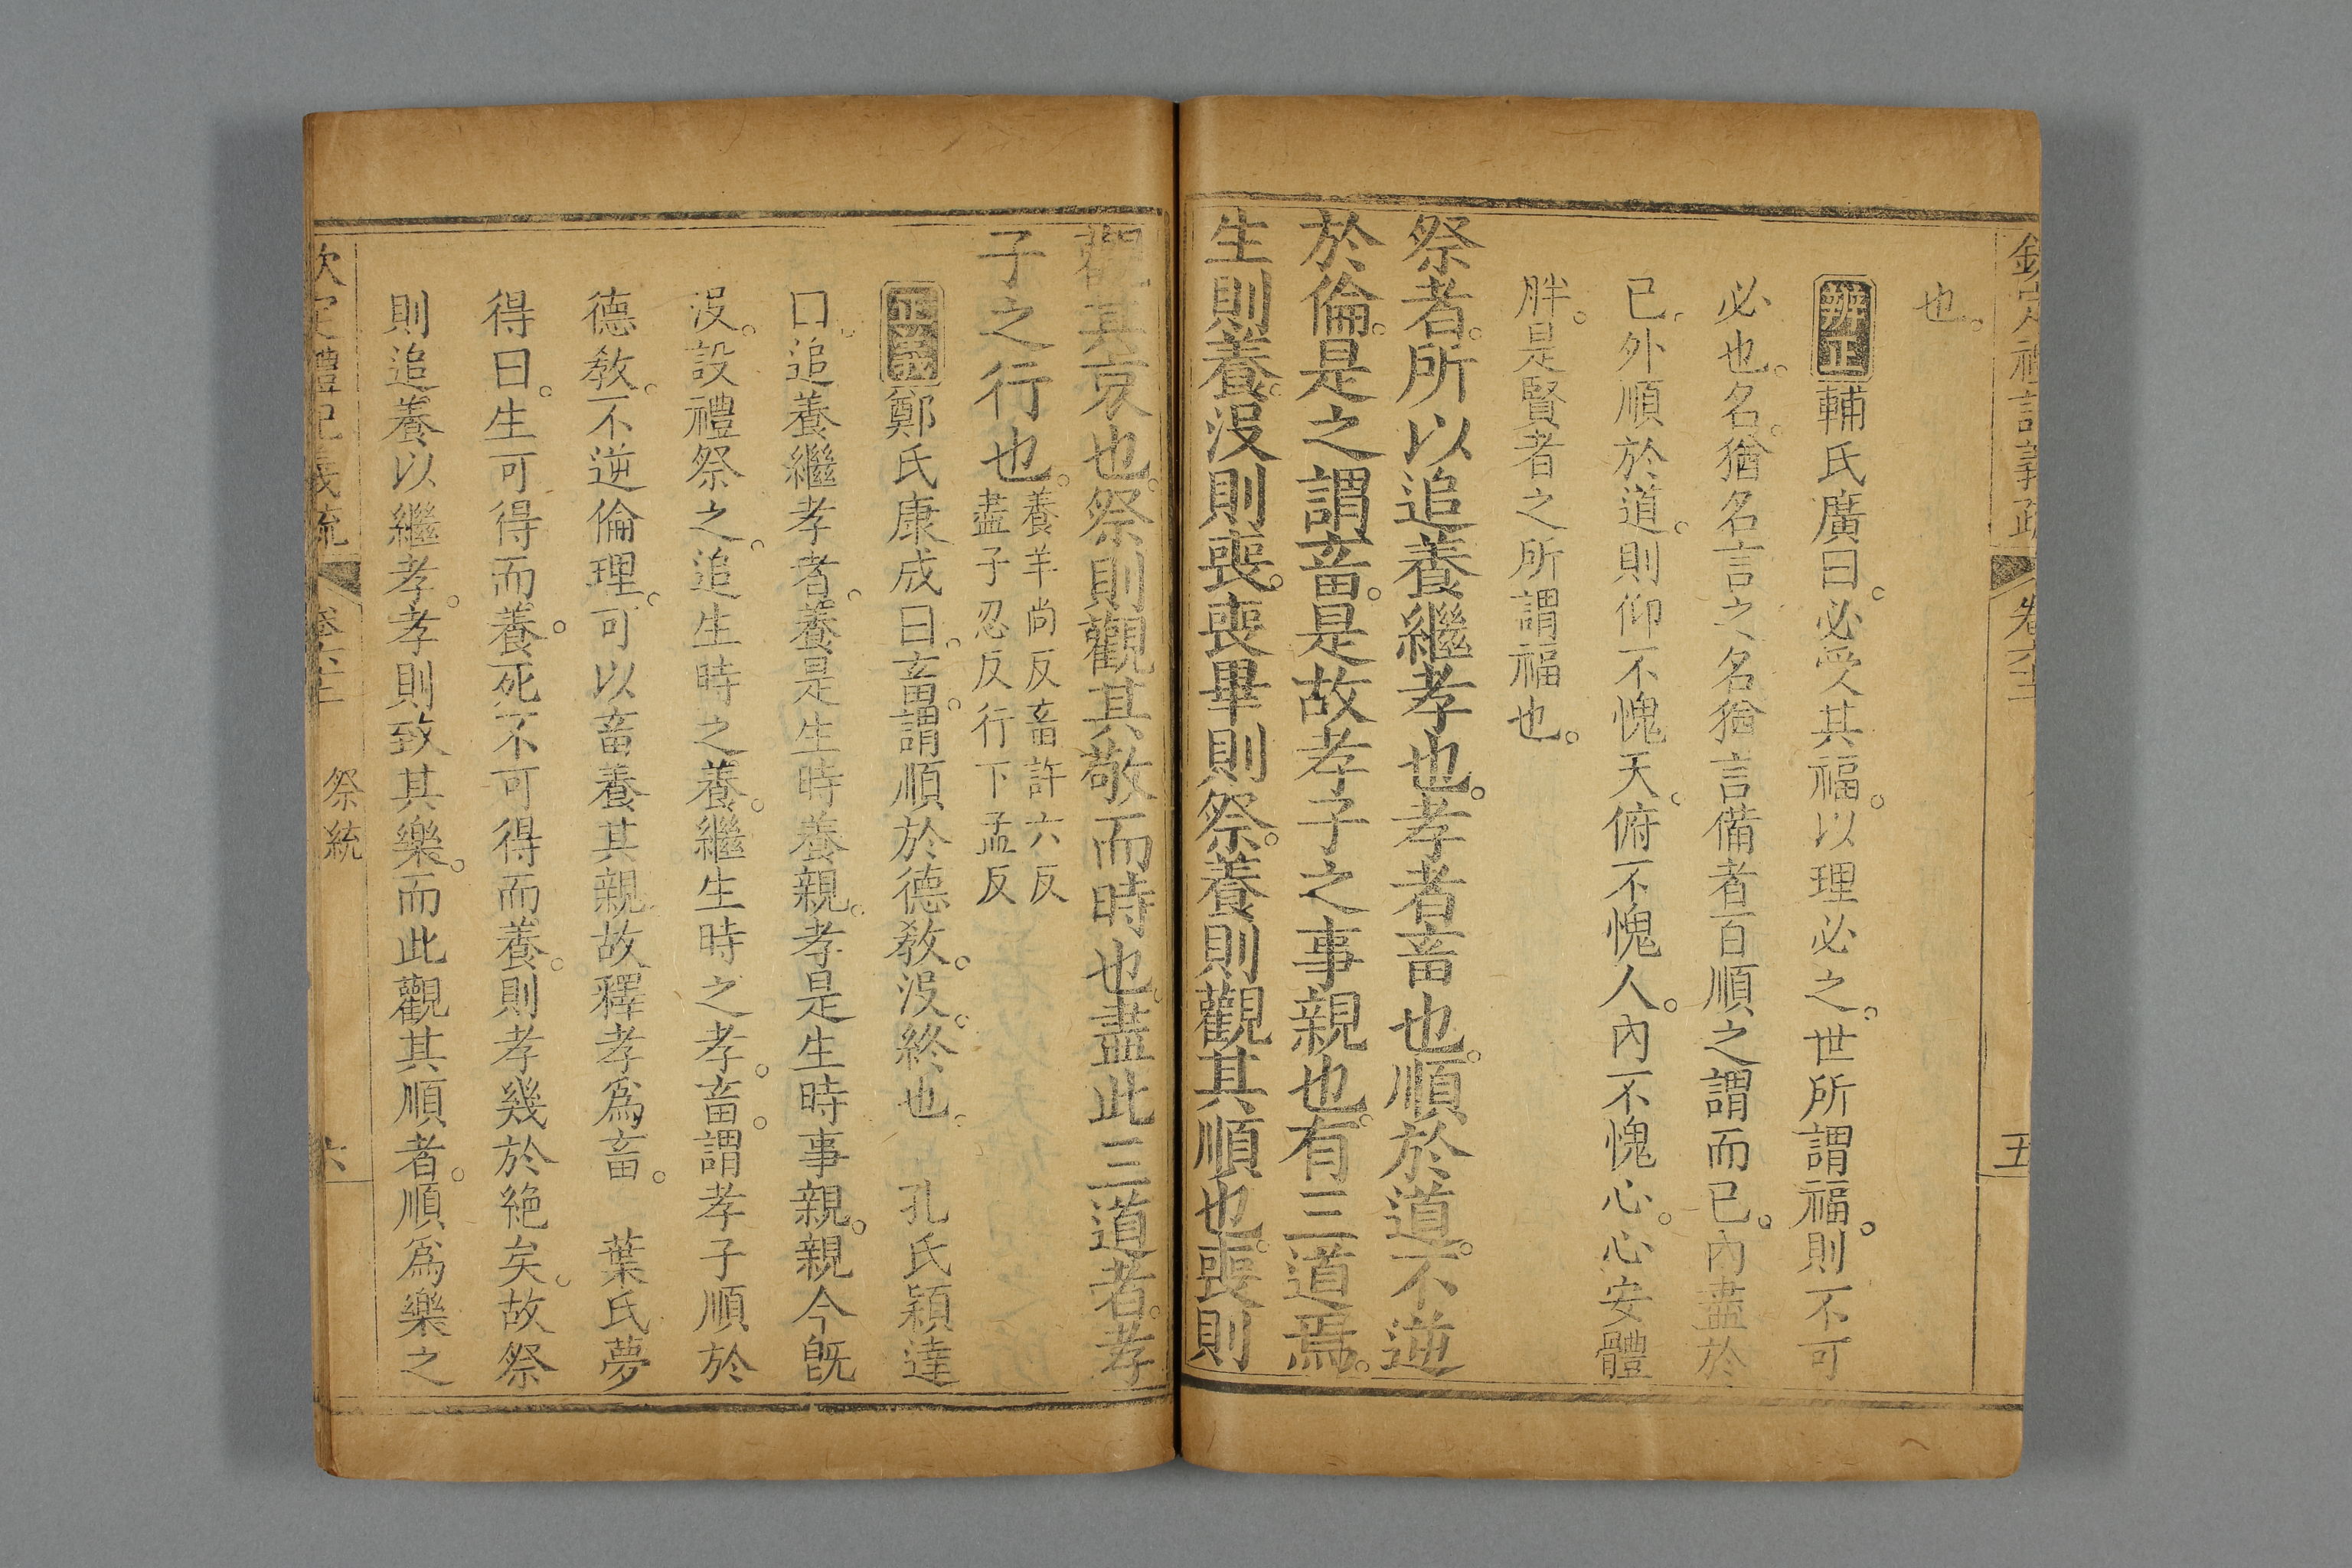 欽定禮記義疏 卷六十二 五
也。
辨正輔氏廣曰。必受其福。以理必之。世所謂福。則不可
必也。名。猶名言之名猶言備者百順之謂而已。內盡於
已。外順於道。則仰不愧天。俯不愧人。內不愧心。心安體
胖。是賢者之所謂福也。
祭者。所以追養繼孝也。孝者畜也。順於道。不逆
於倫。是之謂畜。是故孝子之事親也。有三道焉。
生則養。沒則喪。喪畢則祭。養則觀其順也。喪則
觀其哀也。祭則觀其敬而時也。盡此三道者。孝
子之行也。養羊尚反畜許六反
盡子忍反行下孟反
正義鄭氏康成曰。畜。謂順於德敎。沒。終也。 孔氏穎達
曰。追養繼孝者。養是生時養親。孝是生時事親。親今旣
沒。設禮祭之。追生時之養。繼生時之孝。畜。謂孝子順於
德敎。不逆倫理。可以畜養其親。故釋孝爲畜。 葉氏夢
得曰。生可得而養。死不可得而養。則孝幾於絶矣。故祭
則追養以繼孝。孝則致其樂。而此觀其順者。順爲樂之
欽定禮記義疏 卷六十二 祭統 六